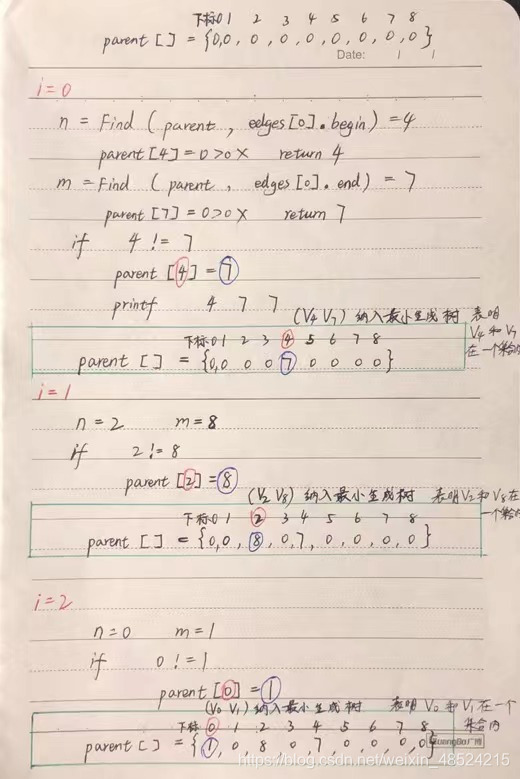 下标0 1 2 3 4 5 6 7 8
parent [ ] = {0,0, 0, 0, 0, 0, 0, 0, 0}
Date: / /
i=0
n = Find ( parent , edges[0].begin ) = 4
parent [4] = 0 >0 × return 4
m = Find ( parent , edges[0].end ) = 7
parent [7] = 0>0 × return 7
if 4 != 7
parent [4] = 7
printf 4 7 7
(V4 V7) 纳入最小生成树 表明V4和V7在一个集合内
下标0 1 2 3 4 5 6 7 8
parent [ ] = {0,0 0 0 7 0 0 0 0}
i=1
n=2 m=8
if 2 != 8
parent [2] = 8
(V2 V8) 纳入最小生成树 表明V2和V8在一个集合内
下标0 1 2 3 4 5 6 7 8
parent [ ] = {0,0, 8, 0,7, 0, 0, 0, 0}
i=2
n=0 m=1
if 0 != 1
parent [0] = 1
(V0 V1) 纳入最小生成树 表明 V0 和 V1 在一个集合内
下标0 1 2 3 4 5 6 7 8
parent [ ] = {1, 0, 8 0 7 0 0 0 0}
GuangBo广博
https://blog.csdn.net/weixin_48524215